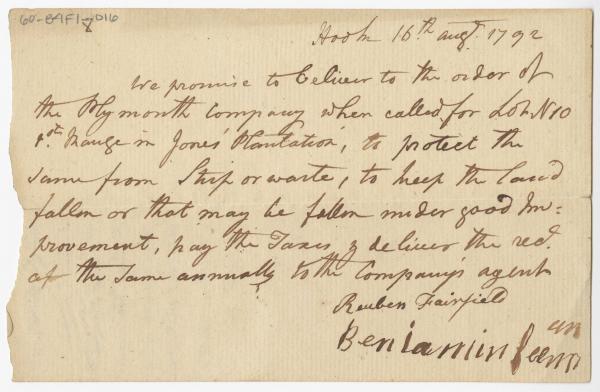 60-B4F1-016
Hook 16th augt. 1792
We promise to Deliver to the order of
the Plymouth Company when called for Lot N 10
1st Range in Jones' Plantation, to protect the
same from Strip or waste, to keep the land
fallen or that may be fallen under good Im=
provement, pay the Taxes & deliver the rect.
of the same annually to the Company's agent
Reuben Fairfield
Beniamin